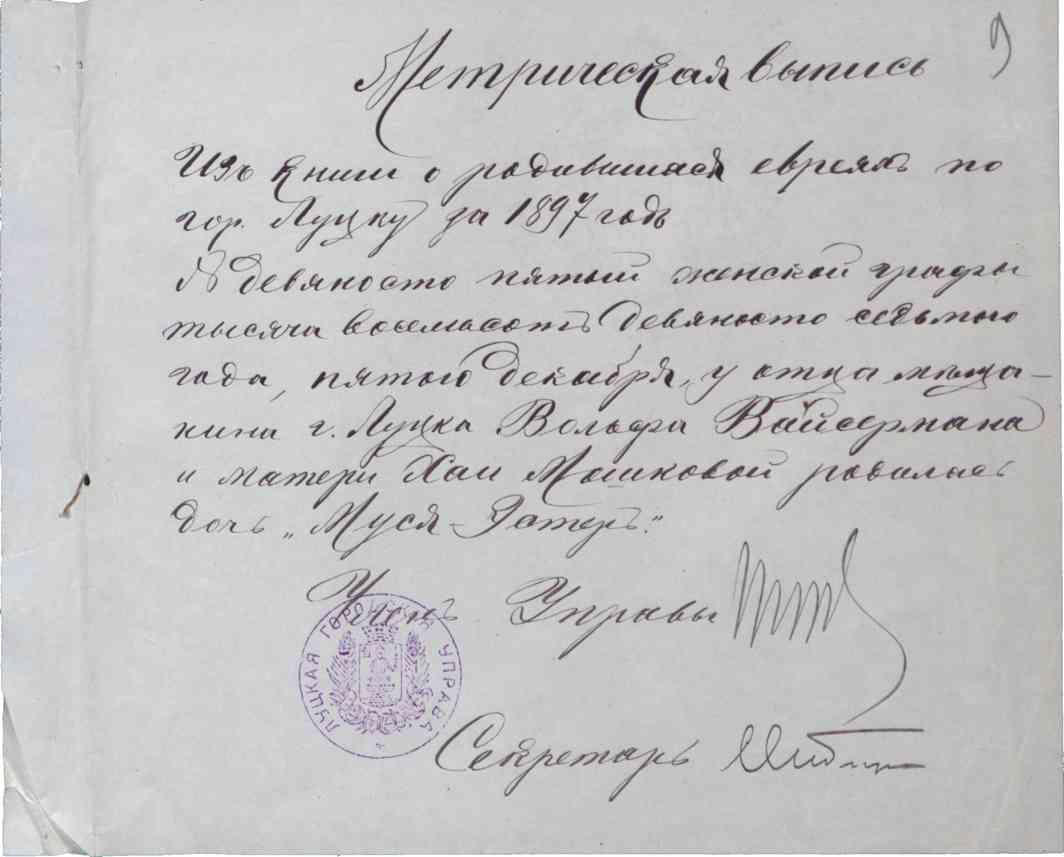 9
Метрическая выпись
Изъ книги о родившихся евреяхъ по
гор. Луцку за 1897 годъ
№ девяносто пятый женской графы
тысяча восемьсотъ девяносто седьмого
года, пятого декабря, у отца мѣща-
нина г. Луцка Вольфа Вайсермана
и матери Хаи Мошковой родилась
дочь „Муся-Эстеръ“.
Членъ Управы
ЛУЦКАЯ ГОРОДСКАЯ УПРАВА
Секретарь